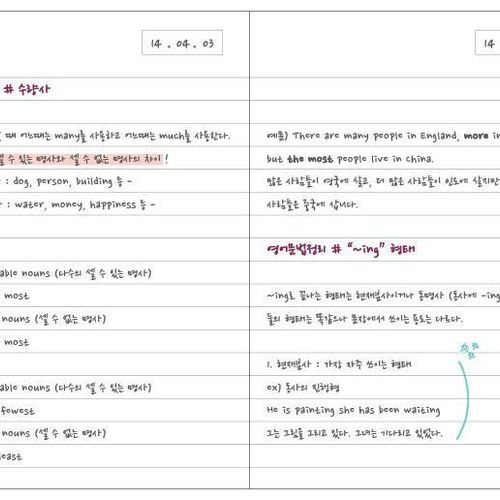 14 . 04 . 03
# 수량사
때 어느때는 many를 사용하고 어느때는 much를 사용한다.
셀 수 있는 명사와 셀 수 없는 명사의 차이!
: dog, person, building 등 -
: water, money, happiness 등 -
able nouns (다수의 셀 수 있는 명사)
most
nouns (셀 수 없는 명사)
most
able nouns (다수의 셀 수 있는 명사)
fewest
nouns (셀 수 없는 명사)
least
14
예문) There are many people in England, more in
but the most people live in China.
많은 사람들이 영국에 살고, 더 많은 사람들이 인도에 살지만
사람들은 중국에 삽니다.
영어문법정리 # "~ing" 형태
~ing로 끝나는 형태는 현재분사이거나 동명사 (동사에 -ing
둘의 형태는 똑같으나 문장에서 쓰이는 용도는 다르다.
1. 현재분사 : 가장 자주 쓰이는 형태
ex) 동사의 진행형
He is painting she has been waiting
그는 그림을 그리고 있다. 그녀는 기다리고 있었다.